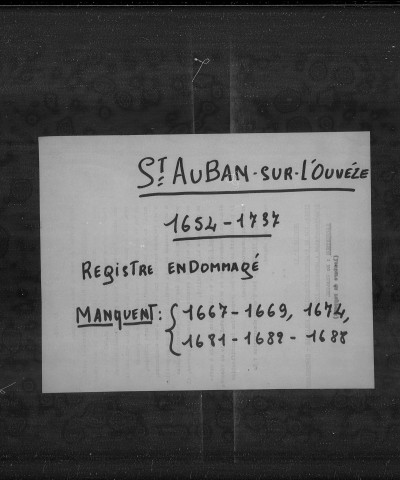 St AUBAN-SUR-L'OUVÉZE
1654-1737
REGISTRE ENDOMMAGÉ
MANQUENT: 1667-1669, 1674,
1681-1682-1688